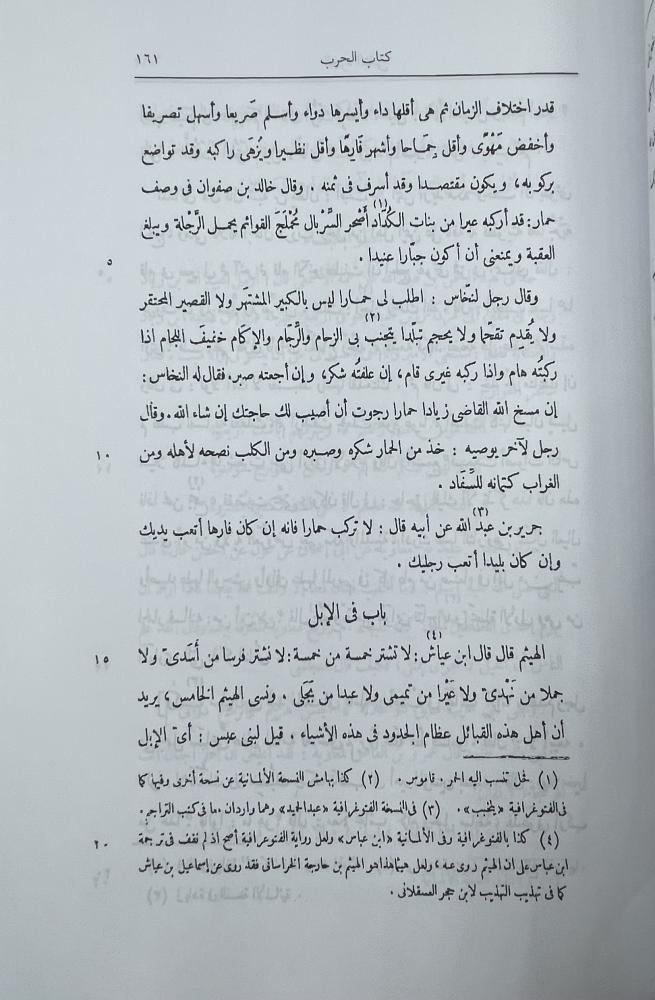 كتاب الحرب ١٦١
قدر اختلاف الزمان ثم هى أقلها داء وأيسرها دواء وأسلم صَريعا وأسهل تصريفا
وأخفض مَهْوًى وأقل جِمَاحا وأشهر فَارِهًا وأقل نظيرا ويُزْهَى راكبه وقد تواضع
بركوبه، ويكون مقتصدا وقد أسرف فى ثمنه . وقال خالد بن صفوان فى وصف
حمار: قد أركبه عيرا من بنات الكُدَاد(١) أصْحر السِّربال مُحَمْلَجَ القوائم يحمل الرَّجْلة ويبلغ
العقبة ويمنعنى أن أكون جبّارا عنيدا . ٥
وقال رجل لنخّاس : اطلب لى حمارا ليس بالكبير المشتهَر ولا القصير المحتقر
ولا يُقدم تقحّما ولا يحجم تبلّدا يتجنب(٢) بى الزحام والرِّجَام والإكَام خفيف اللجام اذا
ركبتُه هام واذا ركبه غيرى قام، إن علفتُه شكر، وإن أجعته صبر. فقال له النخاس :
إن مسخ الله القاضى زيادا حمارا رجوت أن أصيب لك حاجتك إن شاء الله . وقال
رجل لآخر يوصيه : خذ من الحمار شكره وصبره ومن الكلب نصحه لأهله ومن ١٠
الغراب كتمانه للسِّفَاد .
جرير بن عبد(٣) الله عن أبيه قال : لا تركب حمارا فانه إن كان فارها أتعب يديك
وإن كان بليدا أتعب رجليك .
باب فى الإبل
الهيثم قال قال ابن عياش(٤) : لا تشتر خمسة من خمسة: لا تشتر فرسا من أَسَدىّ ولا ١٥
جملا من نَهْدىّ ولا عَيْرا من تميمى ولا عبدا من بَجَلى . ونسى الهيثم الخامس، يريد
أن أهل هذه القبائل عظام الجدود فى هذه الأشياء . قيل لبنى عبس : أىّ الإبل
(١) فحل تنسب اليه الحمر . قاموس . (٢) كذا بهامش النسخة الألمانية عن نسخة أخرى وفيها كما
فى الفتوغرافية «يتحبب» . (٣) فى النسخة الفتوغرافية «عبدالحميد» وهما واردان . ما فى كتب التراجم .
(٤) كذا بالفتوغرافية وفى الألمانية «ابن عباس» ولعل رواية الفتوغرافية أصح اذ لم نقف فى ترجمة ٢٠
ابن عباس على أن الهيثم روى عنه ، ولعل هيثما هذا هو الهيثم بن خارجة الخراسانى فقد روى عن إسماعيل بن عياش
كما فى تهذيب التهذيب لابن حجر العسقلانى .